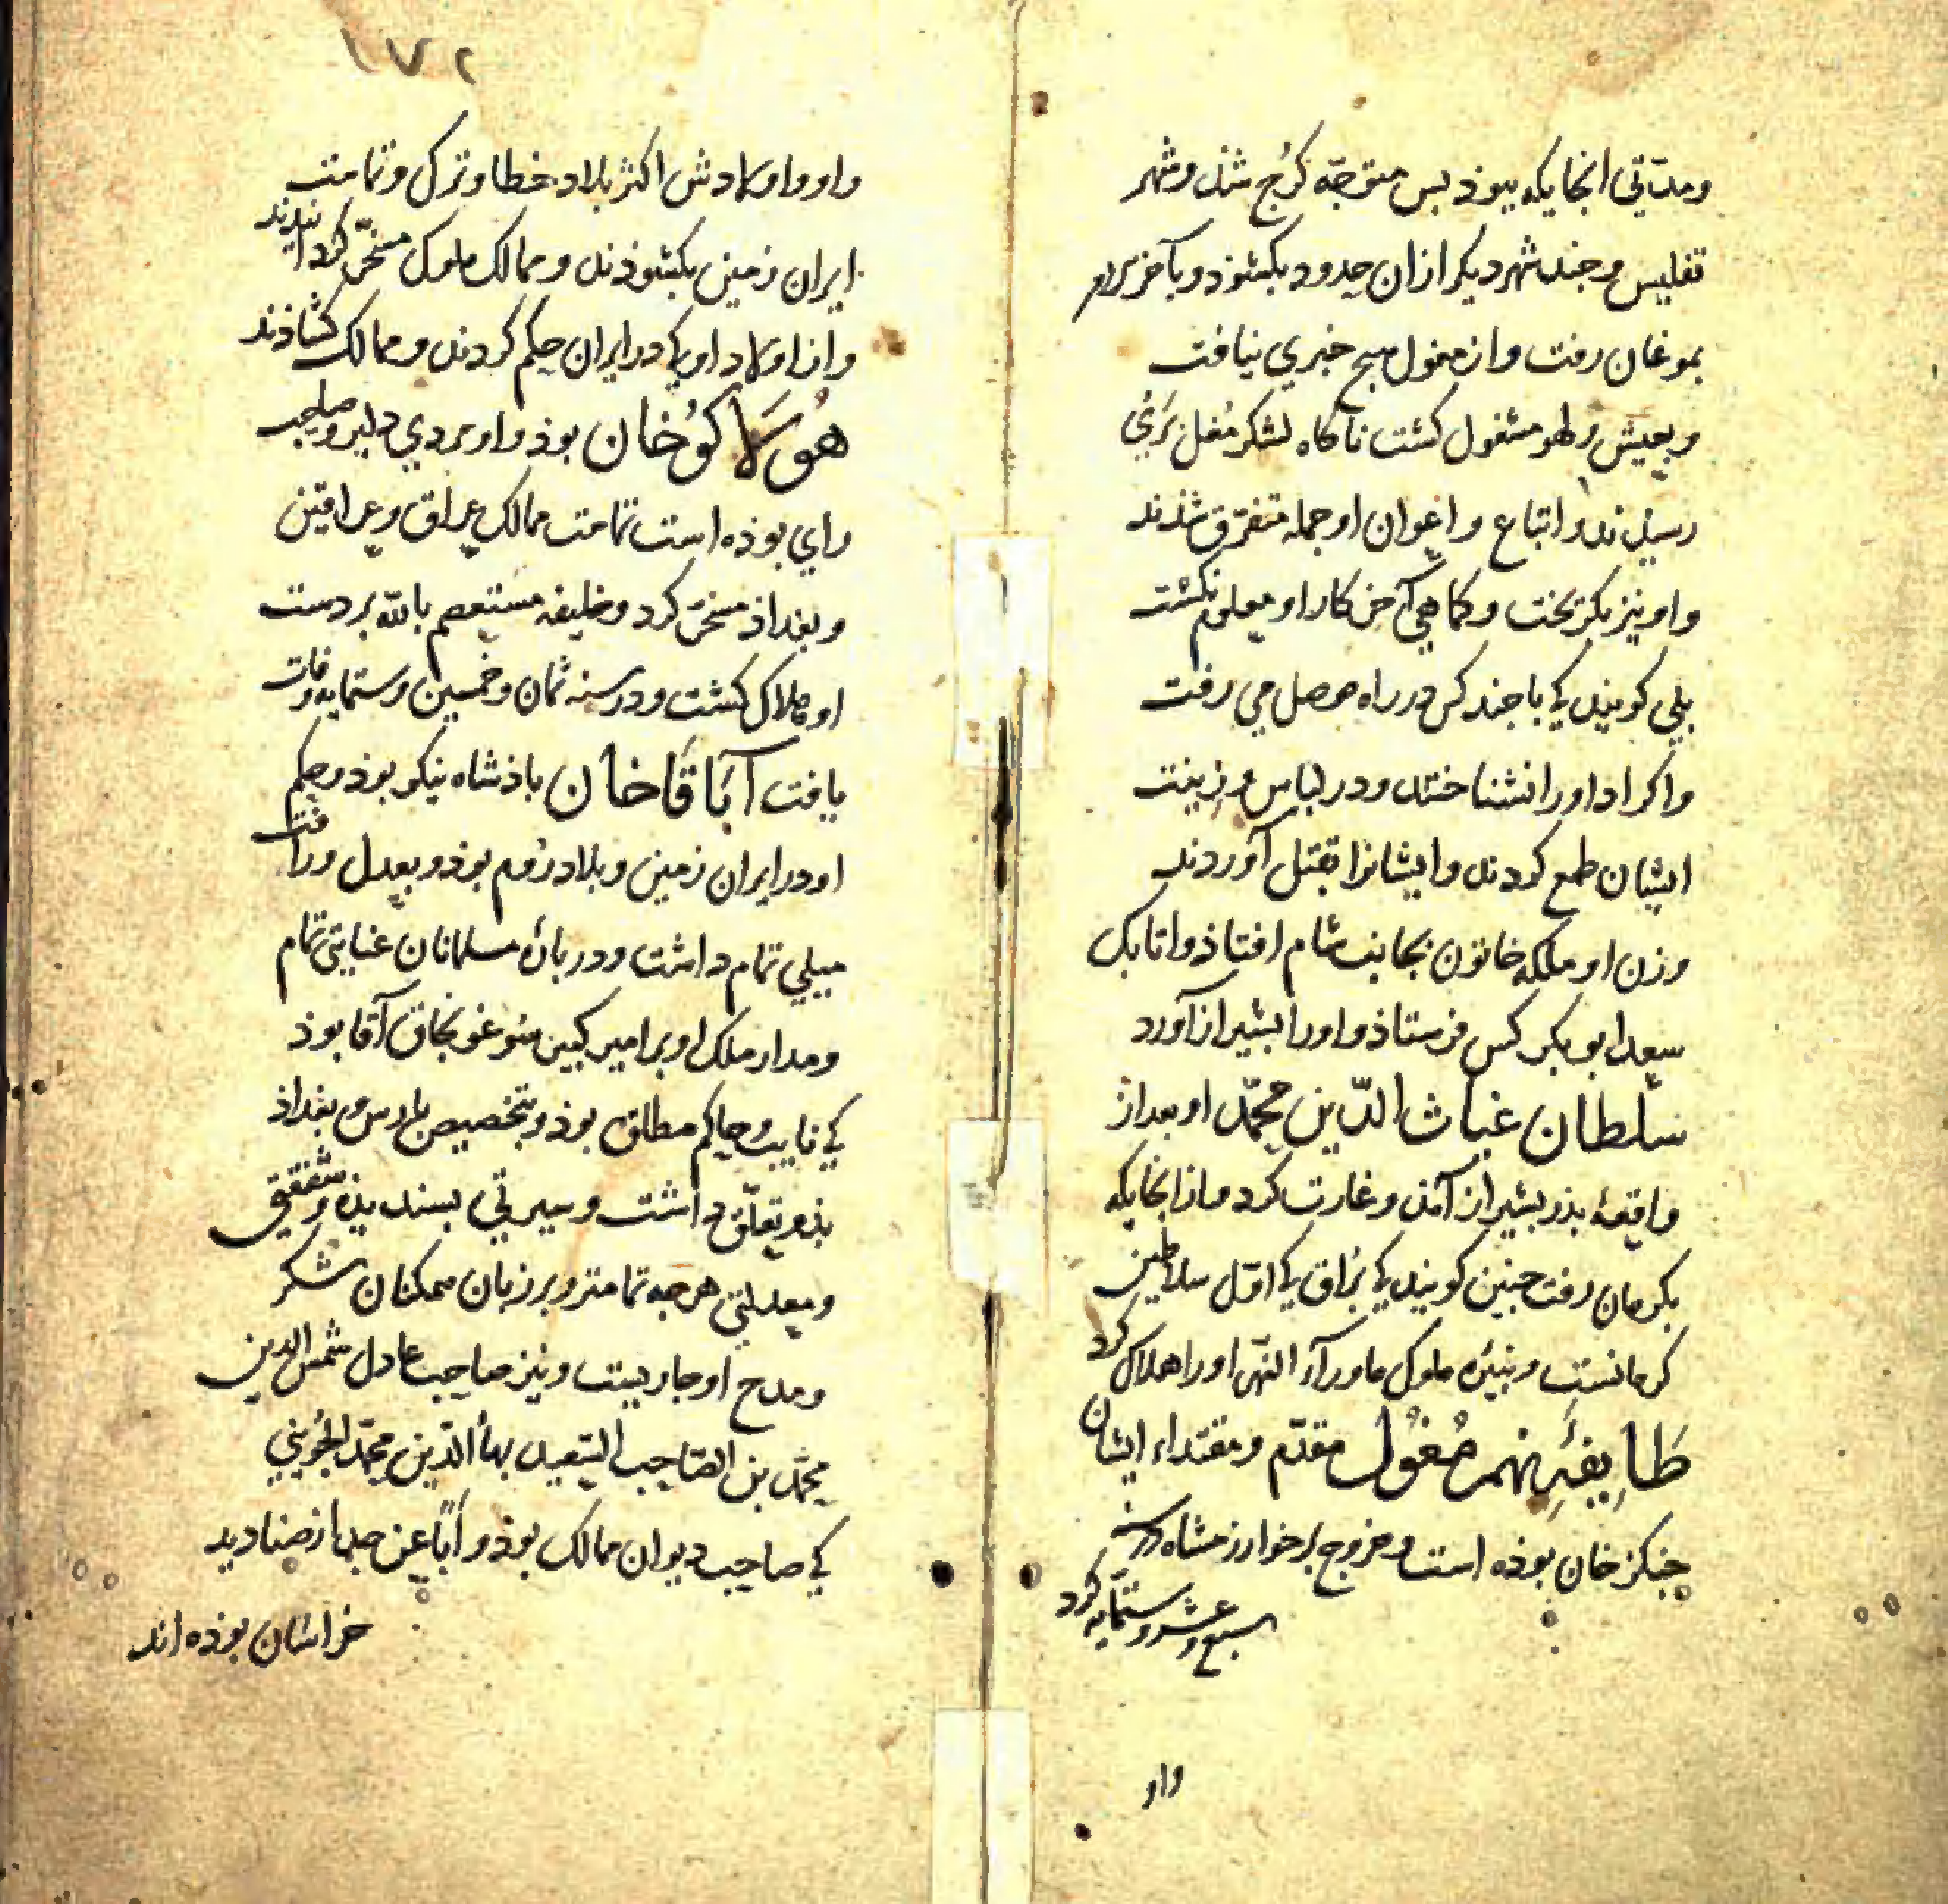 ومدّتي انجايكه ببوذ بس متوجّه كرُج شذ وشهر
تفليس وجند شهر ديكر ازان حدود بكشوذ وبآخر
بموغان رفت واز مغول هيج خبري نيافت
وبعيش ولهو مشغول كشت ناكاه لشكر مغل
رسيذند واتباع واعوان او جمله متفرّق شذند
واو نيز بكريخت وكماهي آخر كار او معلوم نكشت
بلي كويند كي با جند كس در راه موصل مي رفت
واكراد اورا نشناختند ودر لباس وزينت
ايشان طمع كردند وايشانرا بقتل آوردند
وزن او ملكه خاتون بجانب شام افتاذ واتابك
سعد ابو بكر كس فرستاذ واورا بشيراز آورد
سلطان غياث الدّين محمّد او بعد از
واقعهٔ بذر بشيراز آمذ وغارت كرد واز انجايكه
بكرمان رفت جنين كويند كي بُراق كي اوّل سلاطين
كرمانست وبنيرهٔ ملوك ماورآء النّهر اورا هلاك كرد
طَايِفَهِٔ نهم مُغوُل مقدّم ومقتداء ايشان
جنكز خان بوذه است وخروج بر خوارزمشاه در سنه
سبع وعشر وستمايه كرد
واو
١٧٢
واو واولادش اكثر بلاد خطا وترك وتمامت
ايران زمين بكشوذند وممالك ملوك مسخّر كردانيدند
واز اولاد او كي در ايران حكم كردند وممالك كشاذند
هُولَاكوُ خان بوذ واو مردي دلير وصاحب
راي بوذه است تمامت ممالك عراق وعراقين
وبغداذ مسخر كرد وخليفه مستعصم بالله بر دست
او هلاك كشت ودر سنه ثمان وخمسين وستمايه وفات
يافت آبَاقَا خان باذشاه نيكو بوذ وحكم
او در ايران زمين وبلاد روم بوذ وبعدل ورأفت
ميلي تمام داشت ودر بارهٔ مسلمانان عنايتي تمام
ومدار ملك او بر امير كبير سوغونجاق آقا بوذ
كي نايب وحاكم مطلق بوذ وبتخصيص بارس وبغداذ
بذو تعلّق داشت وسيرتي بسنديذه وشفقتي
ومعدلتي هر جه تمامتر وبر زبان همكنان شكر
ومدح او جاريست ونيز صاحب عادل شمس الدين
محمّد بن الصّاحب السّعيد بهاء الدّين محمّد الجُويني
كي صاحب ديوان ممالك بوذ و اباً عن جدٍ از صناديد
خراسان بوذه اند